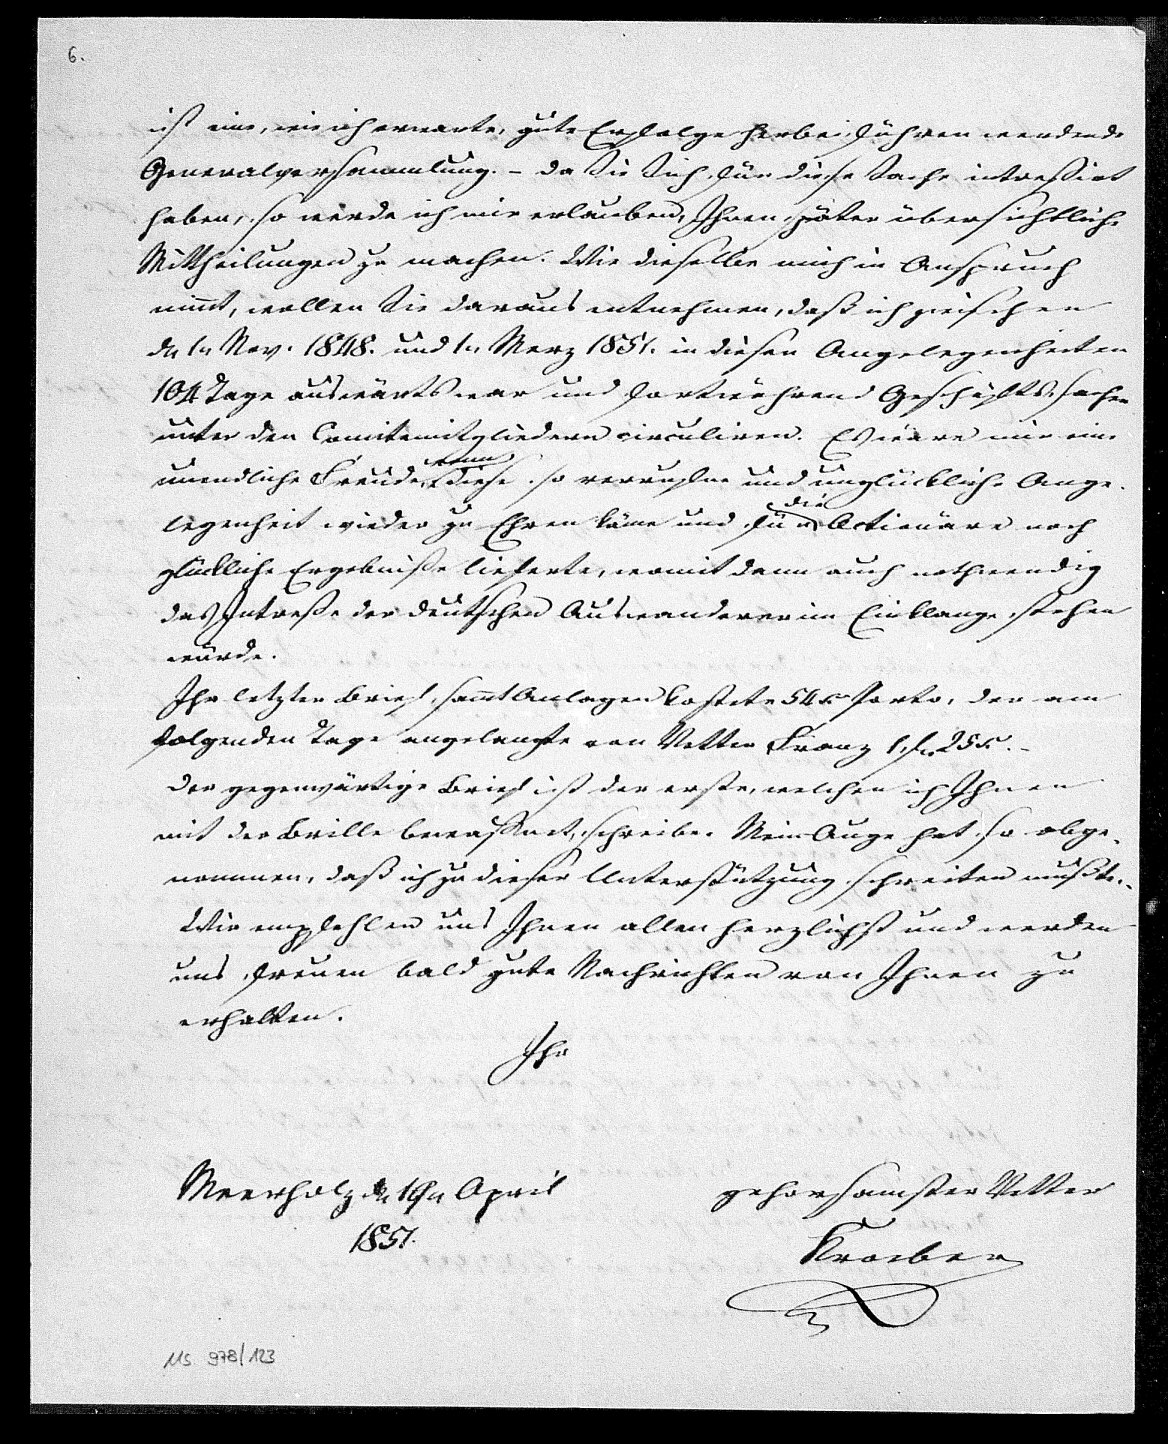 6.
ist eine, wie ich erwarte, gute Erfolge herbei führen werdende
Generalversammlung. – Da Sie Sich für diese Sache intressirt
haben, so werde ich mir erlauben, Ihnen später übersichtliche
Mittheilungen zu machen. Wie dieselbe mich in Anspruch
nim̄t, wollen Sie daraus entnehmen, daß ich zwischen
dn 1n Nov. 1848. und 1n Merz 1851. in diesen Angelegenheiten
104 Tage auswärts war und fortwährend Geschäftssachen
unter den Comitemitgliedern circuliren. Es wäre mir eine
unendliche Freude, wenn diese so verrufene und unglückliche Ange-
legenheit wieder zu Ehren käme und für die Actionäre noch
glückliche Ergebniße lieferte, womit dann auch nothwendig
das Intreße der deutschen Auswanderer im Einklange stehen
würde.
Ihr letzter Brief sam̄t Anlagen kostete 54 x Porto, der am
folgenden Tage angelangte von Vetter Franz 1 f. 25 x. –
Der gegenwärtige Brief ist der erste, welchen ich Ihnen
mit der Brille bewaffnet, schreibe. Mein Auge hat so abge-
nommen, daß ich zu dieser Unterstützung schreiten mußte. –
Wir empfehlen uns Ihnen allen herzlichst und werden
uns freuen bald gute Nachrichten von Ihnen zu
erhalten.
Ihr
Meerholz dn 19n April
1851.
gehorsamster Vetter
Kroeber
Ms 978/123